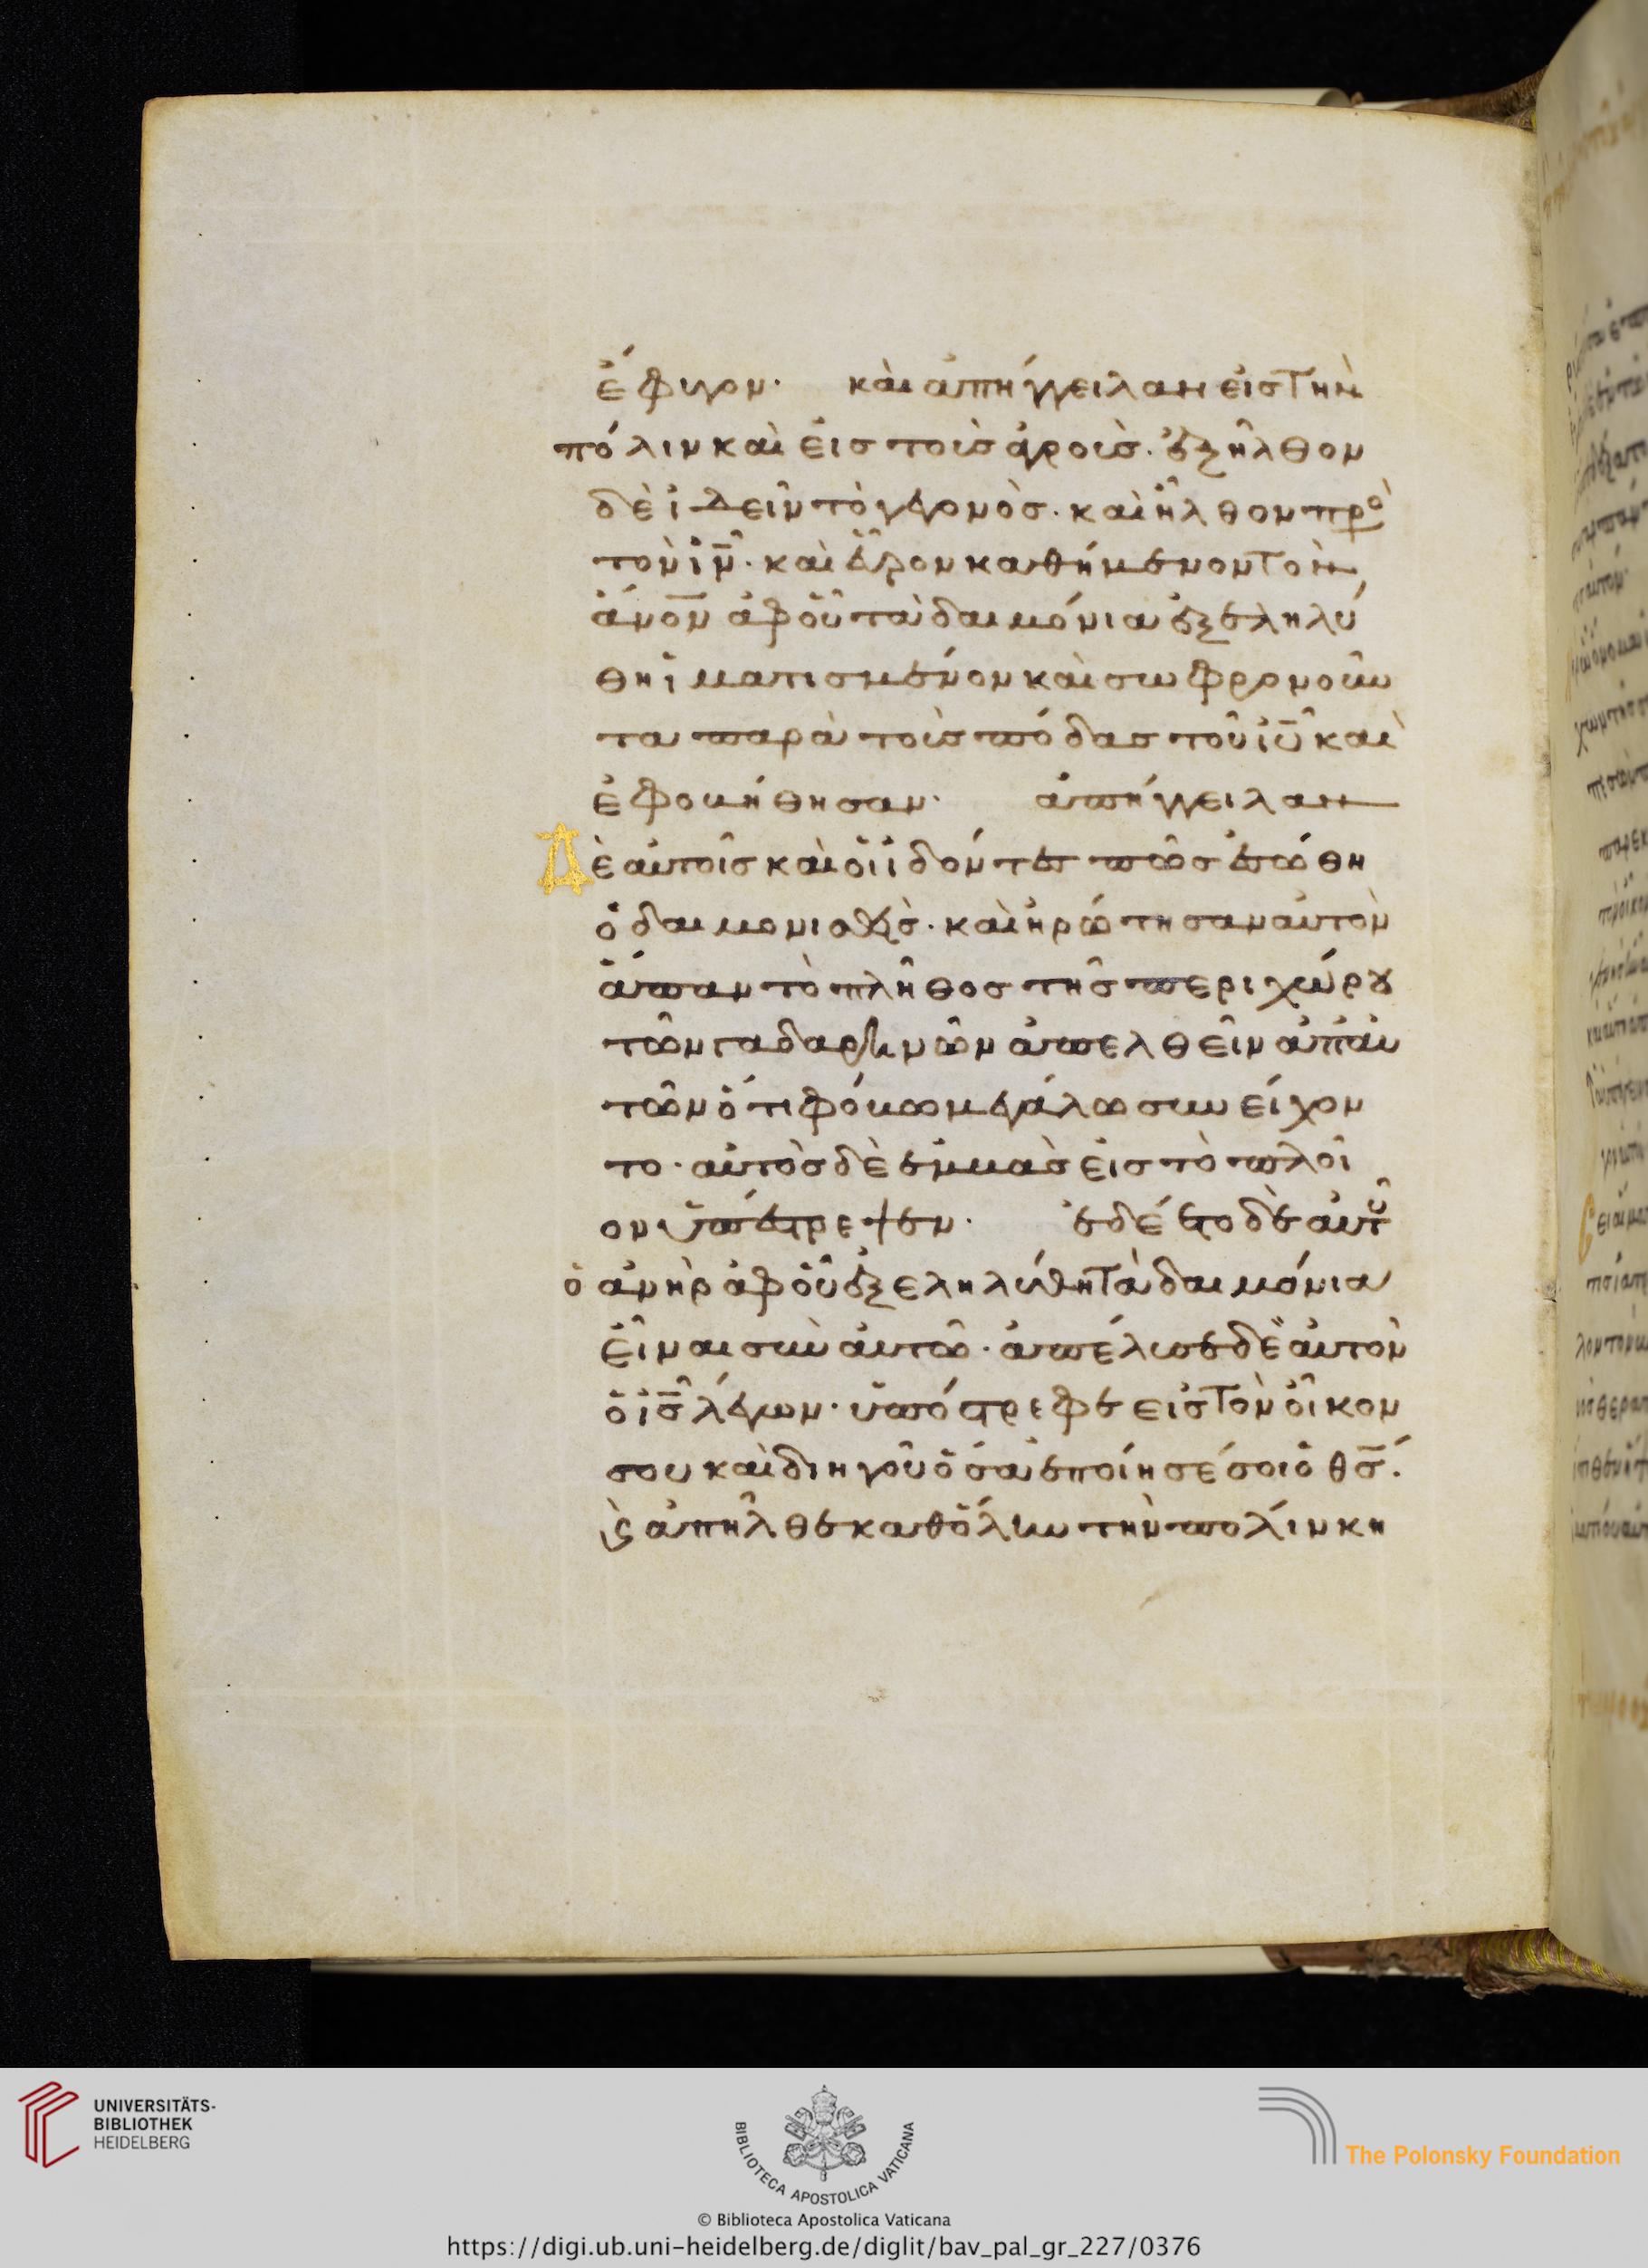 ἔφυγον· καὶ ἀπήγγειλαν εἰς τὴν
πόλιν καὶ εἰς τοὺς ἀγρούς· ἐξῆλθον
δὲ ἰδεῖν τὸ γεγονὸς· καὶ ἦλθον πρὸ
τὸν ἰν̅· καὶ εὗρον καθήμενον τὸν
ἄνο̅ν ἀφ οὗ τὰ δαιμόνια ἐξεληλύ
θη ἱματισμένον καὶ σωφρονοῦν
τα παρὰ τοὺς πόδας τοῦ ἰυ̅ καὶ
ἐφοβήθησαν· ἀπήγγειλαν
Δὲ αὐτοῖς καὶ οἱ ἰδόντες πῶς ἐσώθη
ὁ δαιμονισθεὶς· καὶ ἠρώτησαν αὐτὸν
ἅπαν τὸ πλῆθος τῆς περιχώρου
τῶν γαδαρηνῶν ἀπελθεῖν ἀπ αὐ
τῶν ὅτι φόβω μεγάλω συνείχον
το· αὐτὸς δὲ ἐμβὰς εἰς τὸ πλοῖ
ον ὑπέστρεψεν· ἐδέετο δὲ αὐτοῦ
ὁ ἀνὴρ ἀφ οὗ ἐξεληλύθη τὰ δαιμόνια
εἶναι σὺν αὐτῶ· ἀπέλυσε δὲ αὐτὸν
ὁ ἰς̅ λέγων· ὑπόστρεφε εἰς τὸν οἶκον
σου καὶ διηγοῦ ὅσα ἐποίησέ σοι ὁ θς̅.
ϗ ἀπῆλθε καθ ὅλην τὴν πολίν κη
UNIVERSITÄTS-
BIBLIOTHEK
HEIDELBERG
BIBLIOTECA APOSTOLICA VATICANA
The Polonsky Foundation
© Biblioteca Apostolica Vaticana
https://digi.ub.uni-heidelberg.de/diglit/bav_pal_gr_227/0376